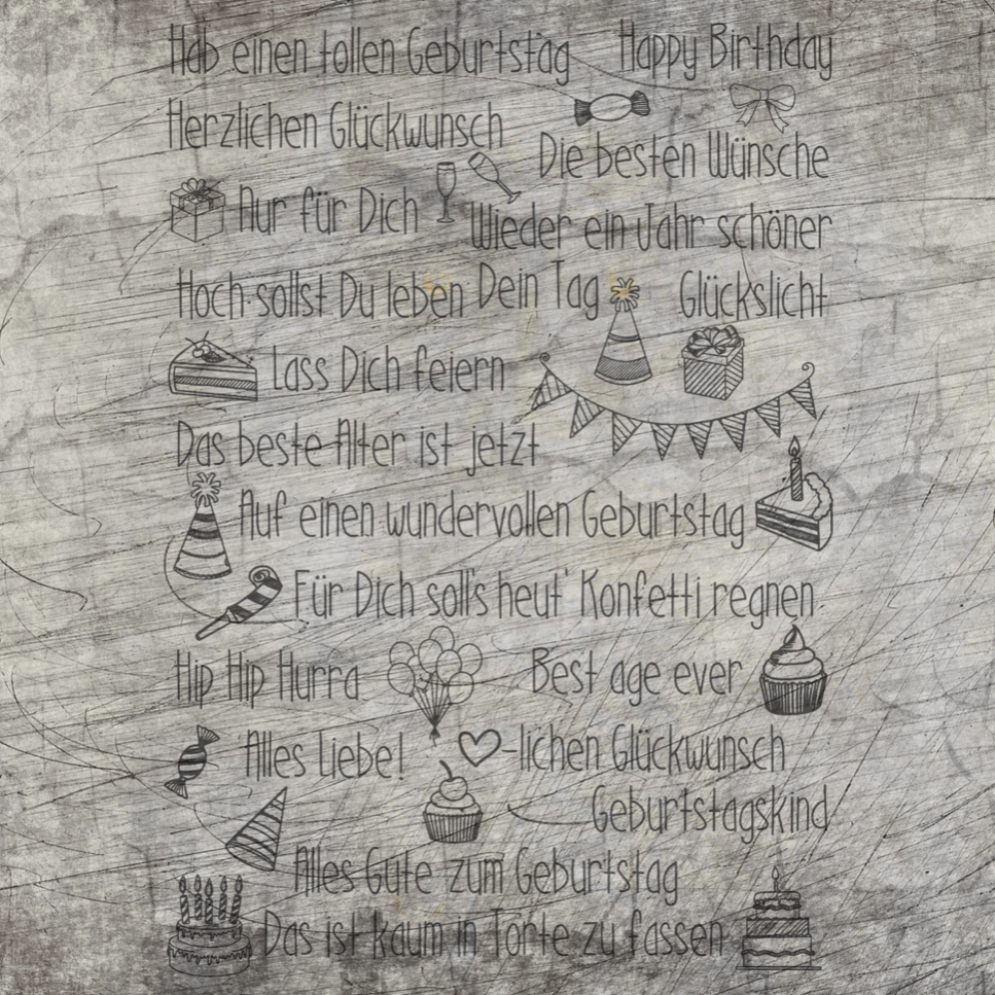 Hab einen tollen Geburtstag Happy Birthday
Herzlichen Glückwunsch
Die besten Wünsche
Nur für Dich
Wieder ein Jahr schöner
Hoch sollst Du leben Dein Tag Glückslicht
Lass Dich feiern
Das beste Alter ist jetzt
Auf einen wundervollen Geburtstag
Für Dich soll's heut' Konfetti regnen
Hip Hip Hurra Best age ever
Alles Liebe! -lichen Glückwunsch
Geburtstagskind
Alles Gute zum Geburtstag
Das ist kaum in Torte zu fassen